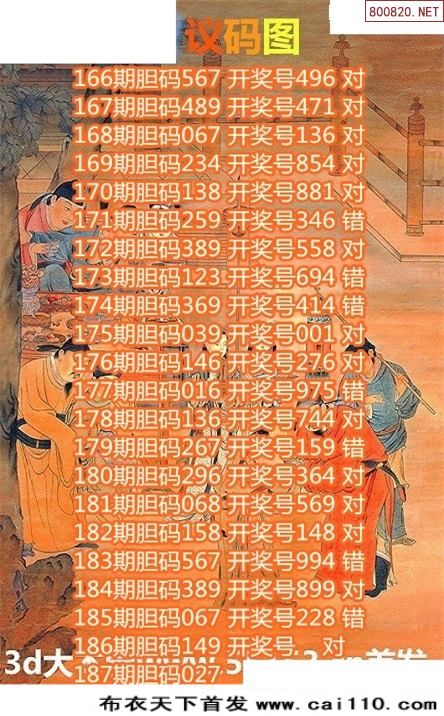 800820.NET
议码图
166期胆码567 开奖号496 对
167期胆码489 开奖号471 对
168期胆码067 开奖号136 对
169期胆码234 开奖号854 对
170期胆码138 开奖号881 对
171期胆码259 开奖号346 错
172期胆码389 开奖号558 对
173期胆码123 开奖号694 错
174期胆码369 开奖号414 错
175期胆码039 开奖号001 对
176期胆码146 开奖号276 对
177期胆码036 开奖号975 错
178期胆码136 开奖号 对
179期胆码267 开奖号159 错
180期胆码296 开奖号364 对
181期胆码068 开奖号569 对
182期胆码158 开奖号148 对
183期胆码567 开奖号994 错
184期胆码389 开奖号899 对
185期胆码067 开奖号228 错
186期胆码149 开奖号 对
3d大 首发
187期胆码027
布衣天下首发 www.cai110.com